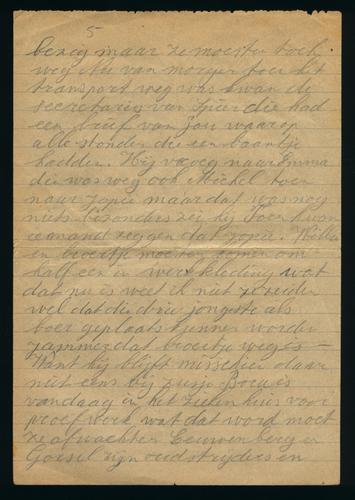 5
bezig maar ze moesten toch
weg Nu van morgen toen het
transport weg was kwam de
secretaris van hier die had
een brief van jou waar op
alle stonden die een baantje
hadden. Hij vroeg naar Emma
die was weg ook Michel toen
naar Jopie maar dat was nog
niets bizonders zei hij Toen kwam
iemand zeggen dat Jopie.
en broertje moesten komen om
half een in werkkleding wat
dat nu is weet ik niet ze zeiden
wel dat die drie jongste als
boer geplaats kunnen worden
jammer dat broertje weg is —
Want hij blijft misschien daar
niet eens bij zusje is
vandaag in het ziekenhuis voor
proef werk wat dat word moet
ze afwachten Leuwenberg en
Gorsel zijn oudstrijders en